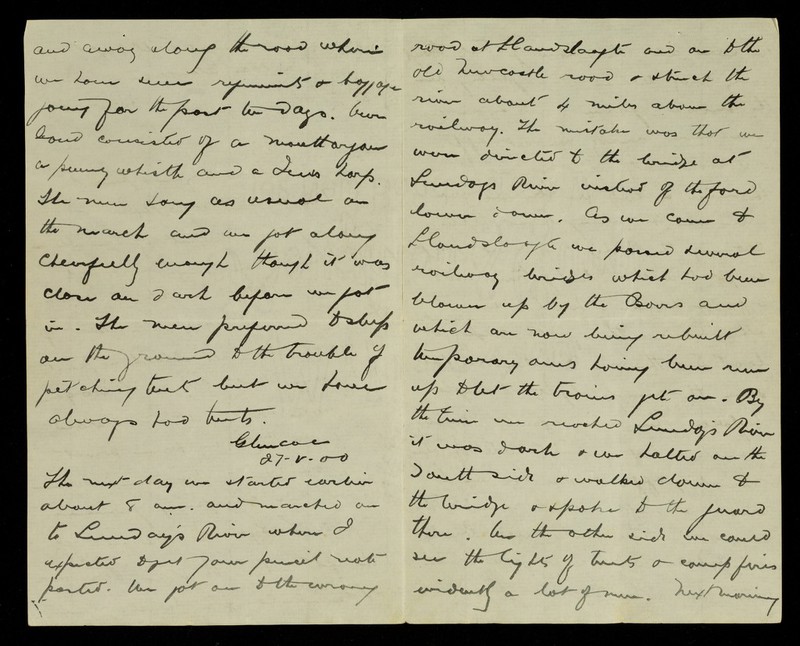 and away along the road where
we have seen regiments & baggage
going for the past ten days. Our
band consisted of a mouthorgan
a penny whistle and a Jews harp.
The men sang as usual on
the march and we got along
cheerfully enough though it was
close on dark before we got
in. The men preferred to sleep
on the ground to the trouble of
pitching tents but we have
always had tents.
Glencoe
27-V-00
The next day we started earlier
about 8 am. and marched on
to Sunday's River where I
expected to get your pencil note
posted. We got on to the wrong
road at Elandslaagte and on to the
old Newcastle road & struck the
river about 4 miles above the
railway. The mistake was that we
were directed to the bridge at
Sundays River instead of the ford
lower down. As we came to
Elandslaagte we passed several
railway bridges which had been
blown up by the Boers and
which are now being rebuilt
temporary ones having been run
up to let the trains get on. By
the time we reached Sunday's River
it was dark & we halted on the
South side & walked down to
the bridge & spoke to the guard
there. On the other side we could
see the lights of tents & camp fires
evidently a lot of men. Next morning